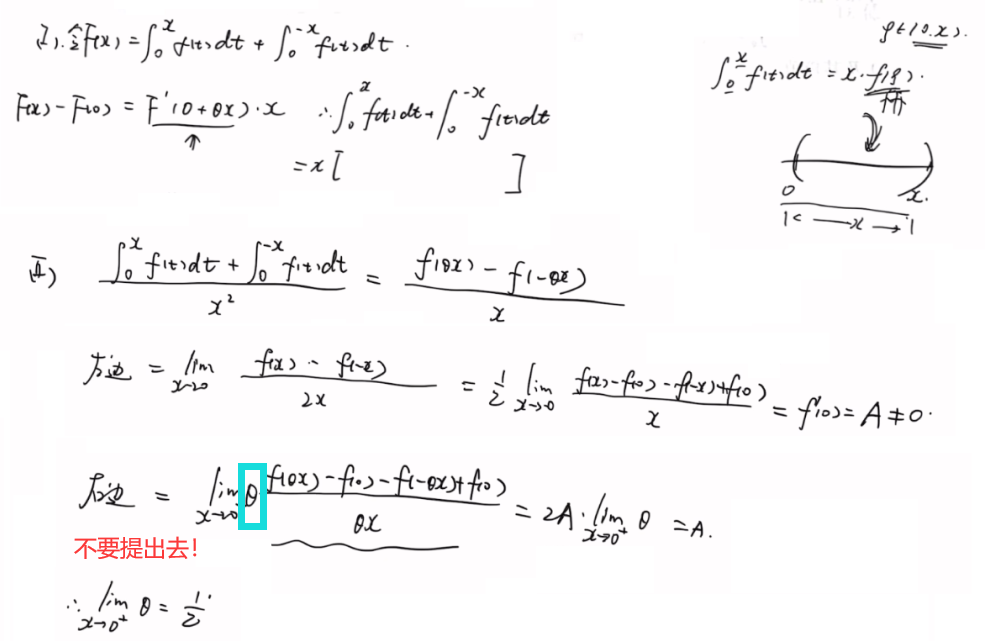 ρ∈(0,x).
(I).令F(x)=∫₀ˣf(t)dt+∫₀⁻ˣf(t)dt.
∫₀ˣf(t)dt=x·f(ρ).
F(x)-F(0)=F'(0+θx)·x ∴∫₀ˣf(t)dt+∫₀⁻ˣf(t)dt
=x[ ]
0 x.
|<—x→|
(II) (∫₀ˣf(t)dt+∫₀⁻ˣf(t)dt)/x² = (f(θx)-f(-θx))/x
左边 = lim_{x→0} (f(x)-f(-x))/2x = 1/2 lim_{x→0} (f(x)-f(0)-f(-x)+f(0))/x = f'(0)=A≠0.
右边 = lim_{x→0} θ (f(θx)-f(0)-f(-θx)+f(0))/θx = 2A·lim_{x→0⁺} θ =A.
不要提出去!
∴lim_{x→0⁺} θ = 1/2.